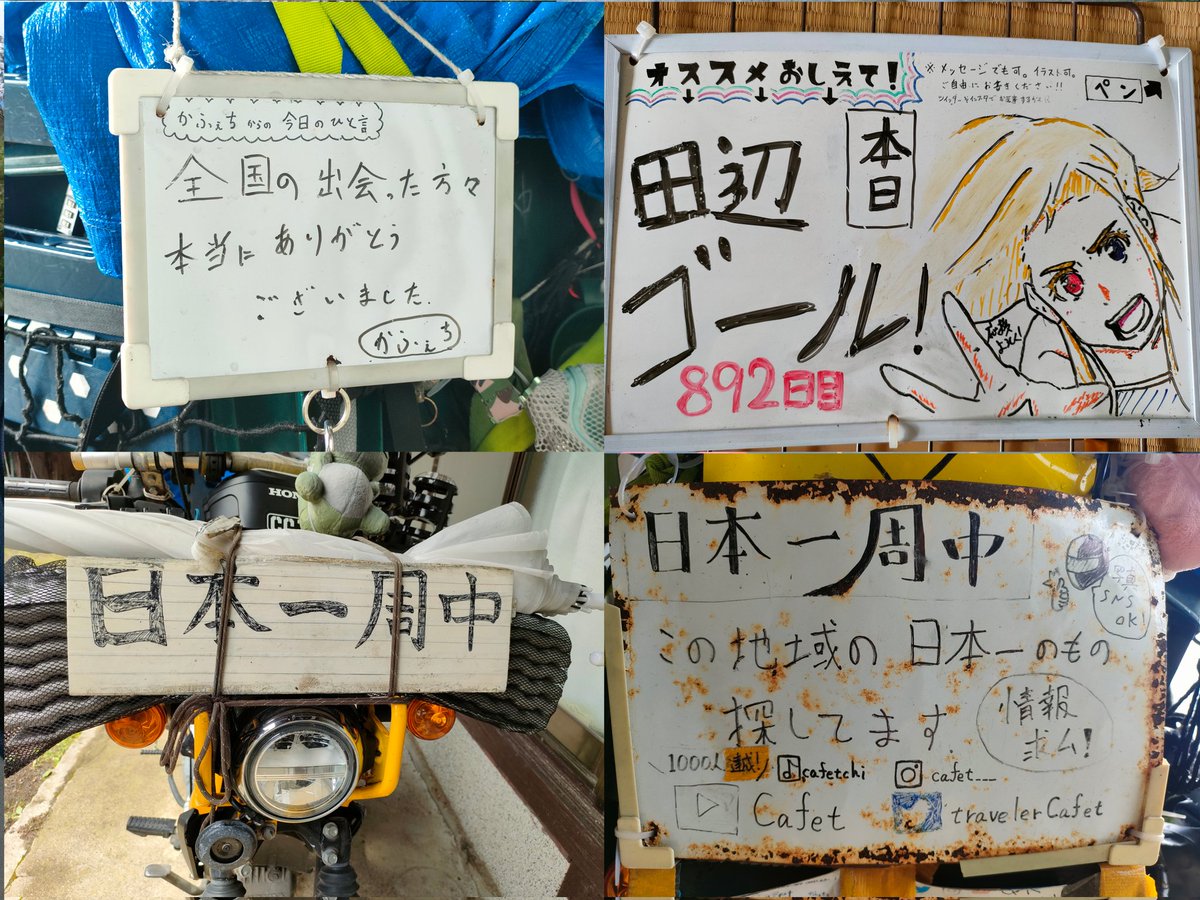 かふぇちからの今日のひと言
全国の出会った方々
本当にありがとう
ございました.
かふぇち
オススメおしえて!
※メッセージでも可。イラスト可。
ご自由にお書きください!!
ペン
本日
田辺
ゴール!
892日目
HON
日本一周中
日本一周中
写真
SNS
OK!
この地域の日本一のもの
探してます.
情報
求ム!
1000人達!
cafetchi
cafet___
Cafet
travelerCafet